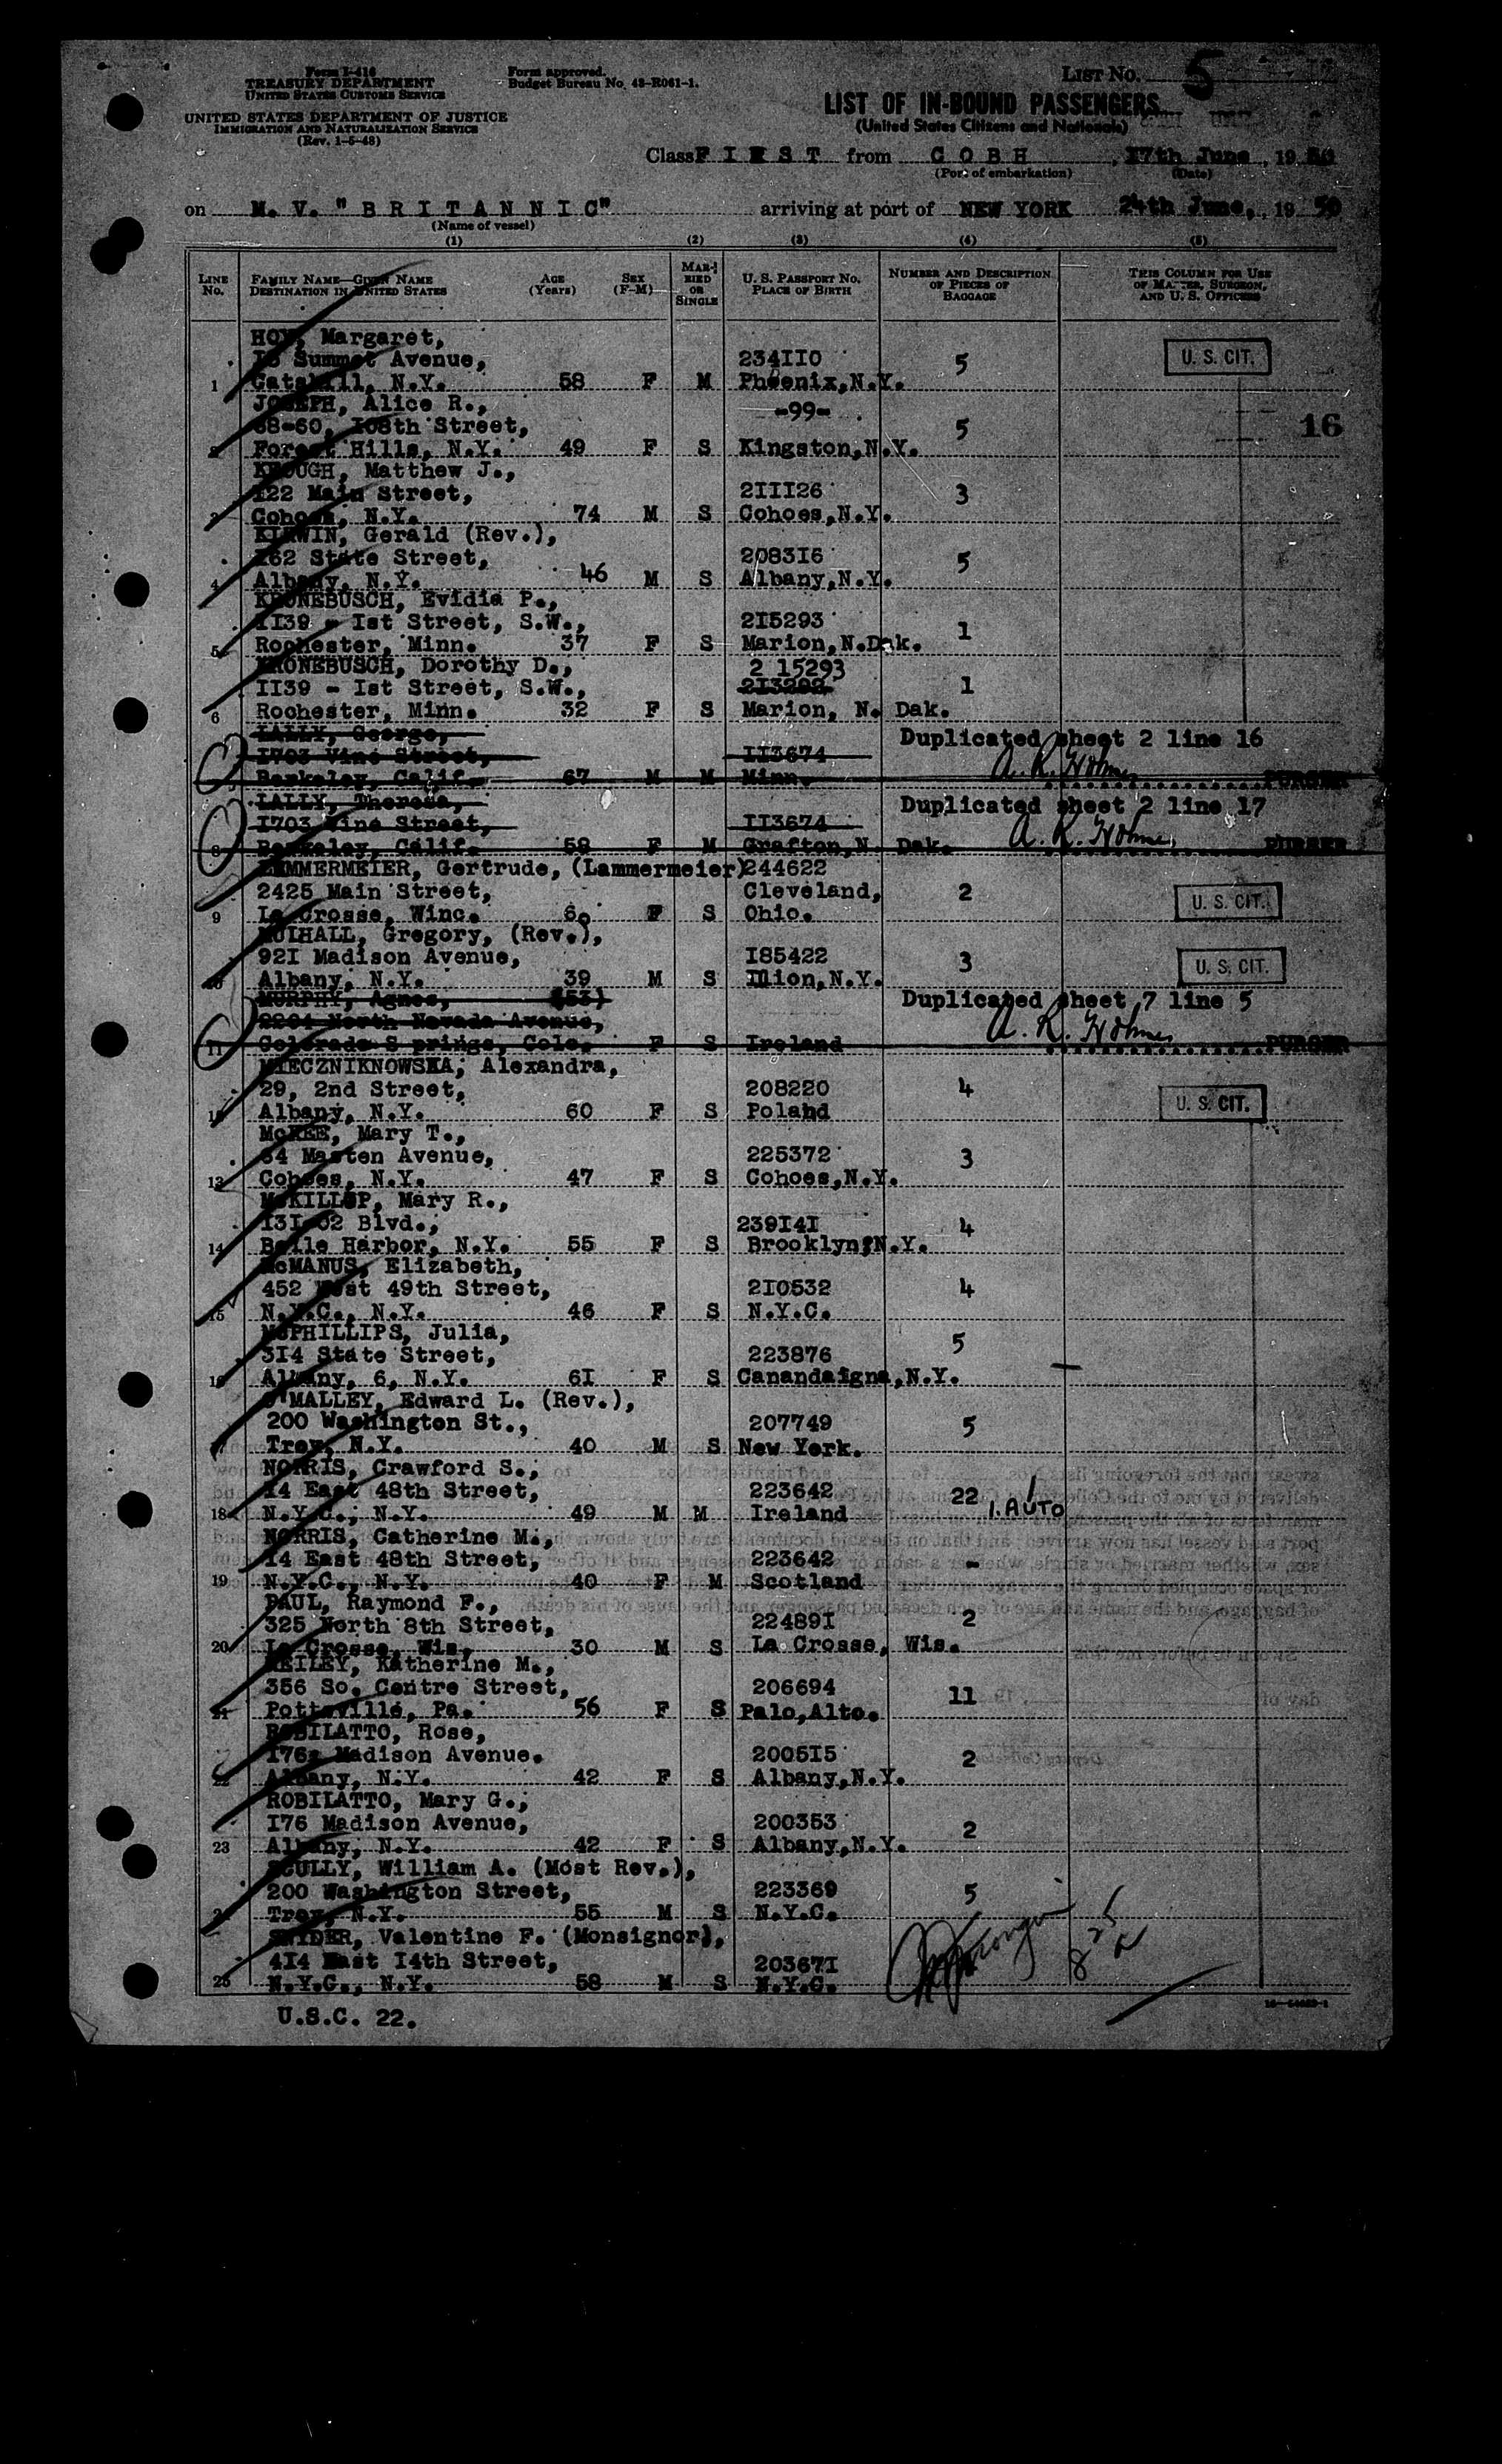 Form I-416
TREASURY DEPARTMENT
UNITED STATES CUSTOMS SERVICE
UNITED STATES DEPARTMENT OF JUSTICE
IMMIGRATION AND NATURALIZATION SERVICE
(Rev. 1-5-48)
Form approved.
Budget Bureau No. 43-R061-1.
LIST No. 5
LIST OF IN-BOUND PASSENGERS
(United States Citizens and Nationals)
Class FIRST from COBH, 17th June, 1950
(Port of embarkation) (Date)
on M. V. "BRITANNIC" arriving at port of NEW YORK 24th June, 1950
(Name of vessel)
(1) (2) (3) (4) (5)
LINE No. FAMILY NAME—GIVEN NAME DESTINATION IN UNITED STATES AGE (Years) SEX (F-M) MARRIED OR SINGLE U. S. PASSPORT NO. PLACE OF BIRTH NUMBER AND DESCRIPTION OF PIECES OF BAGGAGE THIS COLUMN FOR USE OF MASTER, SURGEON, AND U. S. OFFICERS
HOY, Margaret,
Summet Avenue, 234II0 5 U. S. CIT.
1 Catskill, N.Y. 58 F M Phoenix,N.Y.
JOSEPH, Alice R., -99-
68-60, I08th Street, 5 16
2 Forest Hills, N.Y. 49 F S Kingston,N.Y.
KEOUGH, Matthew J.,
I22 Main Street, 2III26 3
3 Cohoes, N.Y. 74 M S Cohoes,N.Y.
KIRWIN, Gerald (Rev.),
I62 State Street, 2083I6 5
4 Albany, N.Y. 46 M S Albany,N.Y.
KRONEBUSCH, Evidia P.,
II39 - Ist Street, S.W., 2I5293 1
5 Rochester, Minn. 37 F S Marion,N.Dak.
KRONEBUSCH, Dorothy D., 2 15293
II39 - Ist Street, S.W., 2I3292 1
6 Rochester, Minn. 32 F S Marion, N. Dak.
LALLY, George, Duplicated sheet 2 line 16
I703 Vine Street, II3674 A. R. Holmes
Berkeley, Calif. 67 M M Minn. PURSER
LALLY, Theresa, Duplicated sheet 2 line 17
I703 Vine Street, II3674 A. R. Holmes
8 Berkeley, Calif. 58 F M Grafton,N. Dak. PURSER
LEMMERMEIER, Gertrude, (Lammermeier) 244622
2425 Main Street, Cleveland, 2 U. S. CIT.
9 La Crosse, Winc. 60 F S Ohio.
MULHALL, Gregory, (Rev.),
92I Madison Avenue, I85422 3 U. S. CIT.
10 Albany, N.Y. 39 M S Ilion,N.Y.
MURPHY, Agnes, (53) Duplicated sheet 7 line 5
North Nevada Avenue, A. R. Holmes
11 Colorado Springs, Colo. F S Ireland PURSER
MIECZNIKNOWSKA, Alexandra,
29, 2nd Street, 208220 4 U. S. CIT.
12 Albany, N.Y. 60 F S Poland
McKEE, Mary T.,
Masten Avenue, 225372 3
13 Cohoes, N.Y. 47 F S Cohoes,N.Y.
McKILLOP, Mary R.,
I3I-02 Blvd., 239I4I 4
14 Belle Harbor, N.Y. 55 F S Brooklyn,N.Y.
McMANUS, Elizabeth,
452 West 49th Street, 2I0532 4
15 N.Y.C., N.Y. 46 F S N.Y.C.
McPHILLIPS, Julia, 5
3I4 State Street, 223876
16 Albany, 6, N.Y. 6I F S Canandaigna,N.Y.
O'MALLEY, Edward L. (Rev.),
200 Washington St., 207749 5
17 Troy, N.Y. 40 M S New York.
NORRIS, Crawford S.,
I4 East 48th Street, 223642 22 1. AUTO
18 N.Y.C., N.Y. 49 M M Ireland
NORRIS, Catherine M.,
I4 East 48th Street, 223642 -
19 N.Y.C., N.Y. 40 F M Scotland
PAUL, Raymond F.,
325 North 8th Street, 22489I 2
20 La Crosse, Wis. 30 M S La Crosse, Wis.
REILEY, Katherine M.,
356 So. Centre Street, 206694 11
21 Pottsville, Pa. 56 F S Palo,Alto.
ROBILATTO, Rose,
I76 Madison Avenue. 2005I5 2
22 Albany, N.Y. 42 F S Albany,N.Y.
ROBILATTO, Mary G.,
I76 Madison Avenue, 200353 2
23 Albany, N.Y. 42 F S Albany,N.Y.
SCULLY, William A. (Most Rev.),
200 Washington Street, 223369 5
24 Troy, N.Y. 55 M S N.Y.C.
SNYDER, Valentine F. (Monsignor),
4I4 East I4th Street, 20367I
25 N.Y.C., N.Y. 58 M S N.Y.C.
U.S.C. 22.